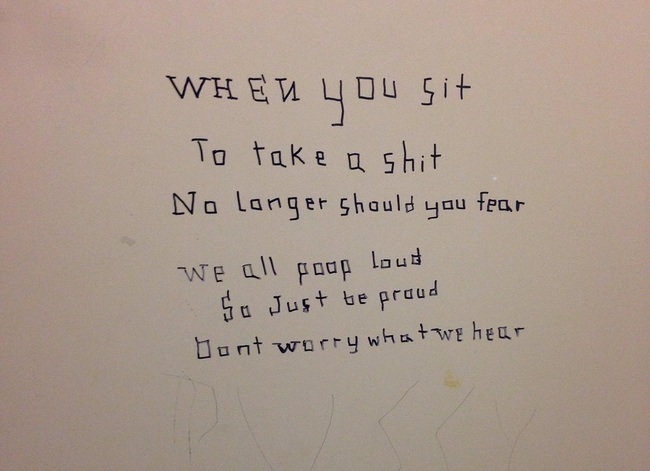 WHEN you sit
To take a shit
No longer should you fear
We all poop loud
So Just be proud
Dont worry what we hear
PUSSY